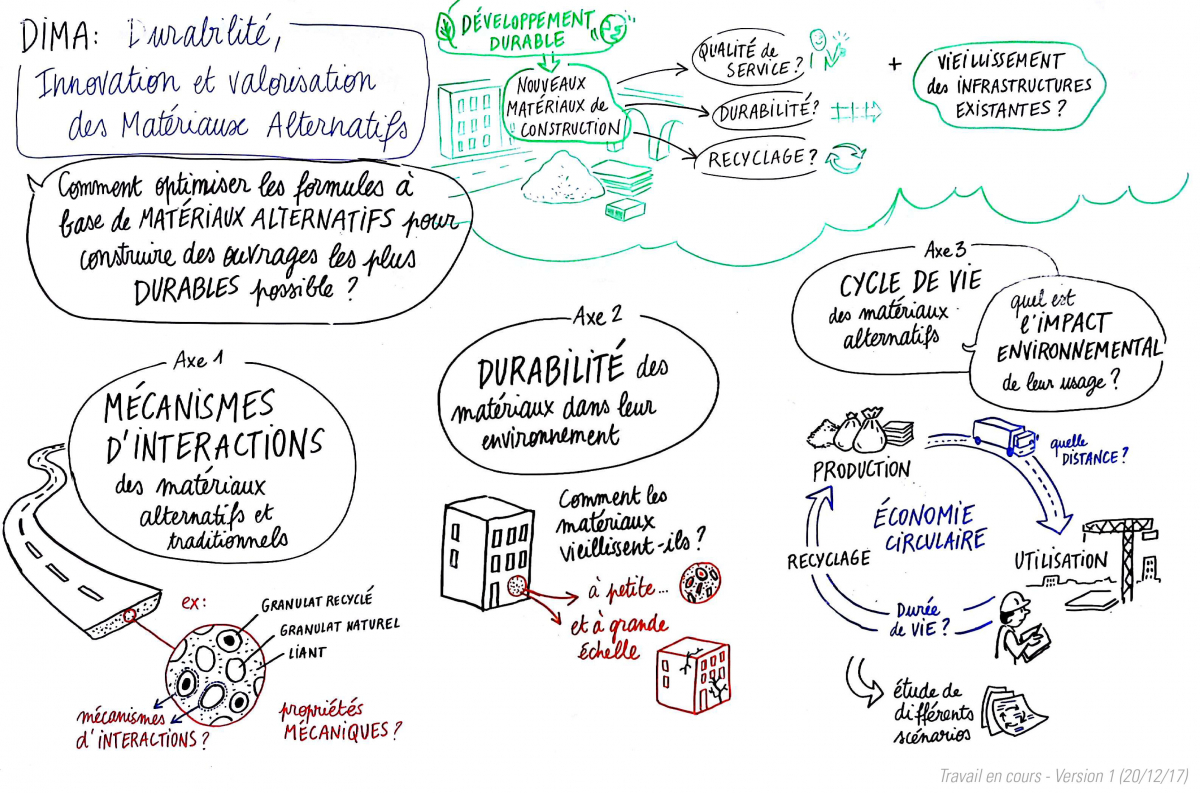 DIMA: Durabilité,
Innovation et valorisation
des Matériaux Alternatifs
Comment optimiser les formules à
base de MATÉRIAUX ALTERNATIFS pour
construire des ouvrages les plus
DURABLES possible ?
DÉVELOPPEMENT
DURABLE
NOUVEAUX
MATÉRIAUX de
CONSTRUCTION
QUALITÉ de
SERVICE ?
DURABILITÉ ?
RECYCLAGE ?
+
VIEILLISSEMENT
des INFRASTRUCTURES
EXISTANTES ?
Axe 1
MÉCANISMES
D'INTERACTIONS
des matériaux
alternatifs et
traditionnels
ex :
GRANULAT RECYCLÉ
GRANULAT NATUREL
LIANT
mécanismes
d'INTERACTIONS ?
propriétés
MÉCANIQUES ?
Axe 2
DURABILITÉ des
matériaux dans leur
environnement
Comment les
matériaux
vieillissent-ils ?
à petite...
et à grande
échelle
Axe 3
CYCLE DE VIE
des matériaux
alternatifs
quel est
l'IMPACT
ENVIRONNEMENTAL
de leur usage ?
PRODUCTION
quelle
DISTANCE ?
ÉCONOMIE
CIRCULAIRE
UTILISATION
RECYCLAGE
Durée
de VIE ?
étude de
différents
scénarios
Travail en cours - Version 1 (20/12/17)